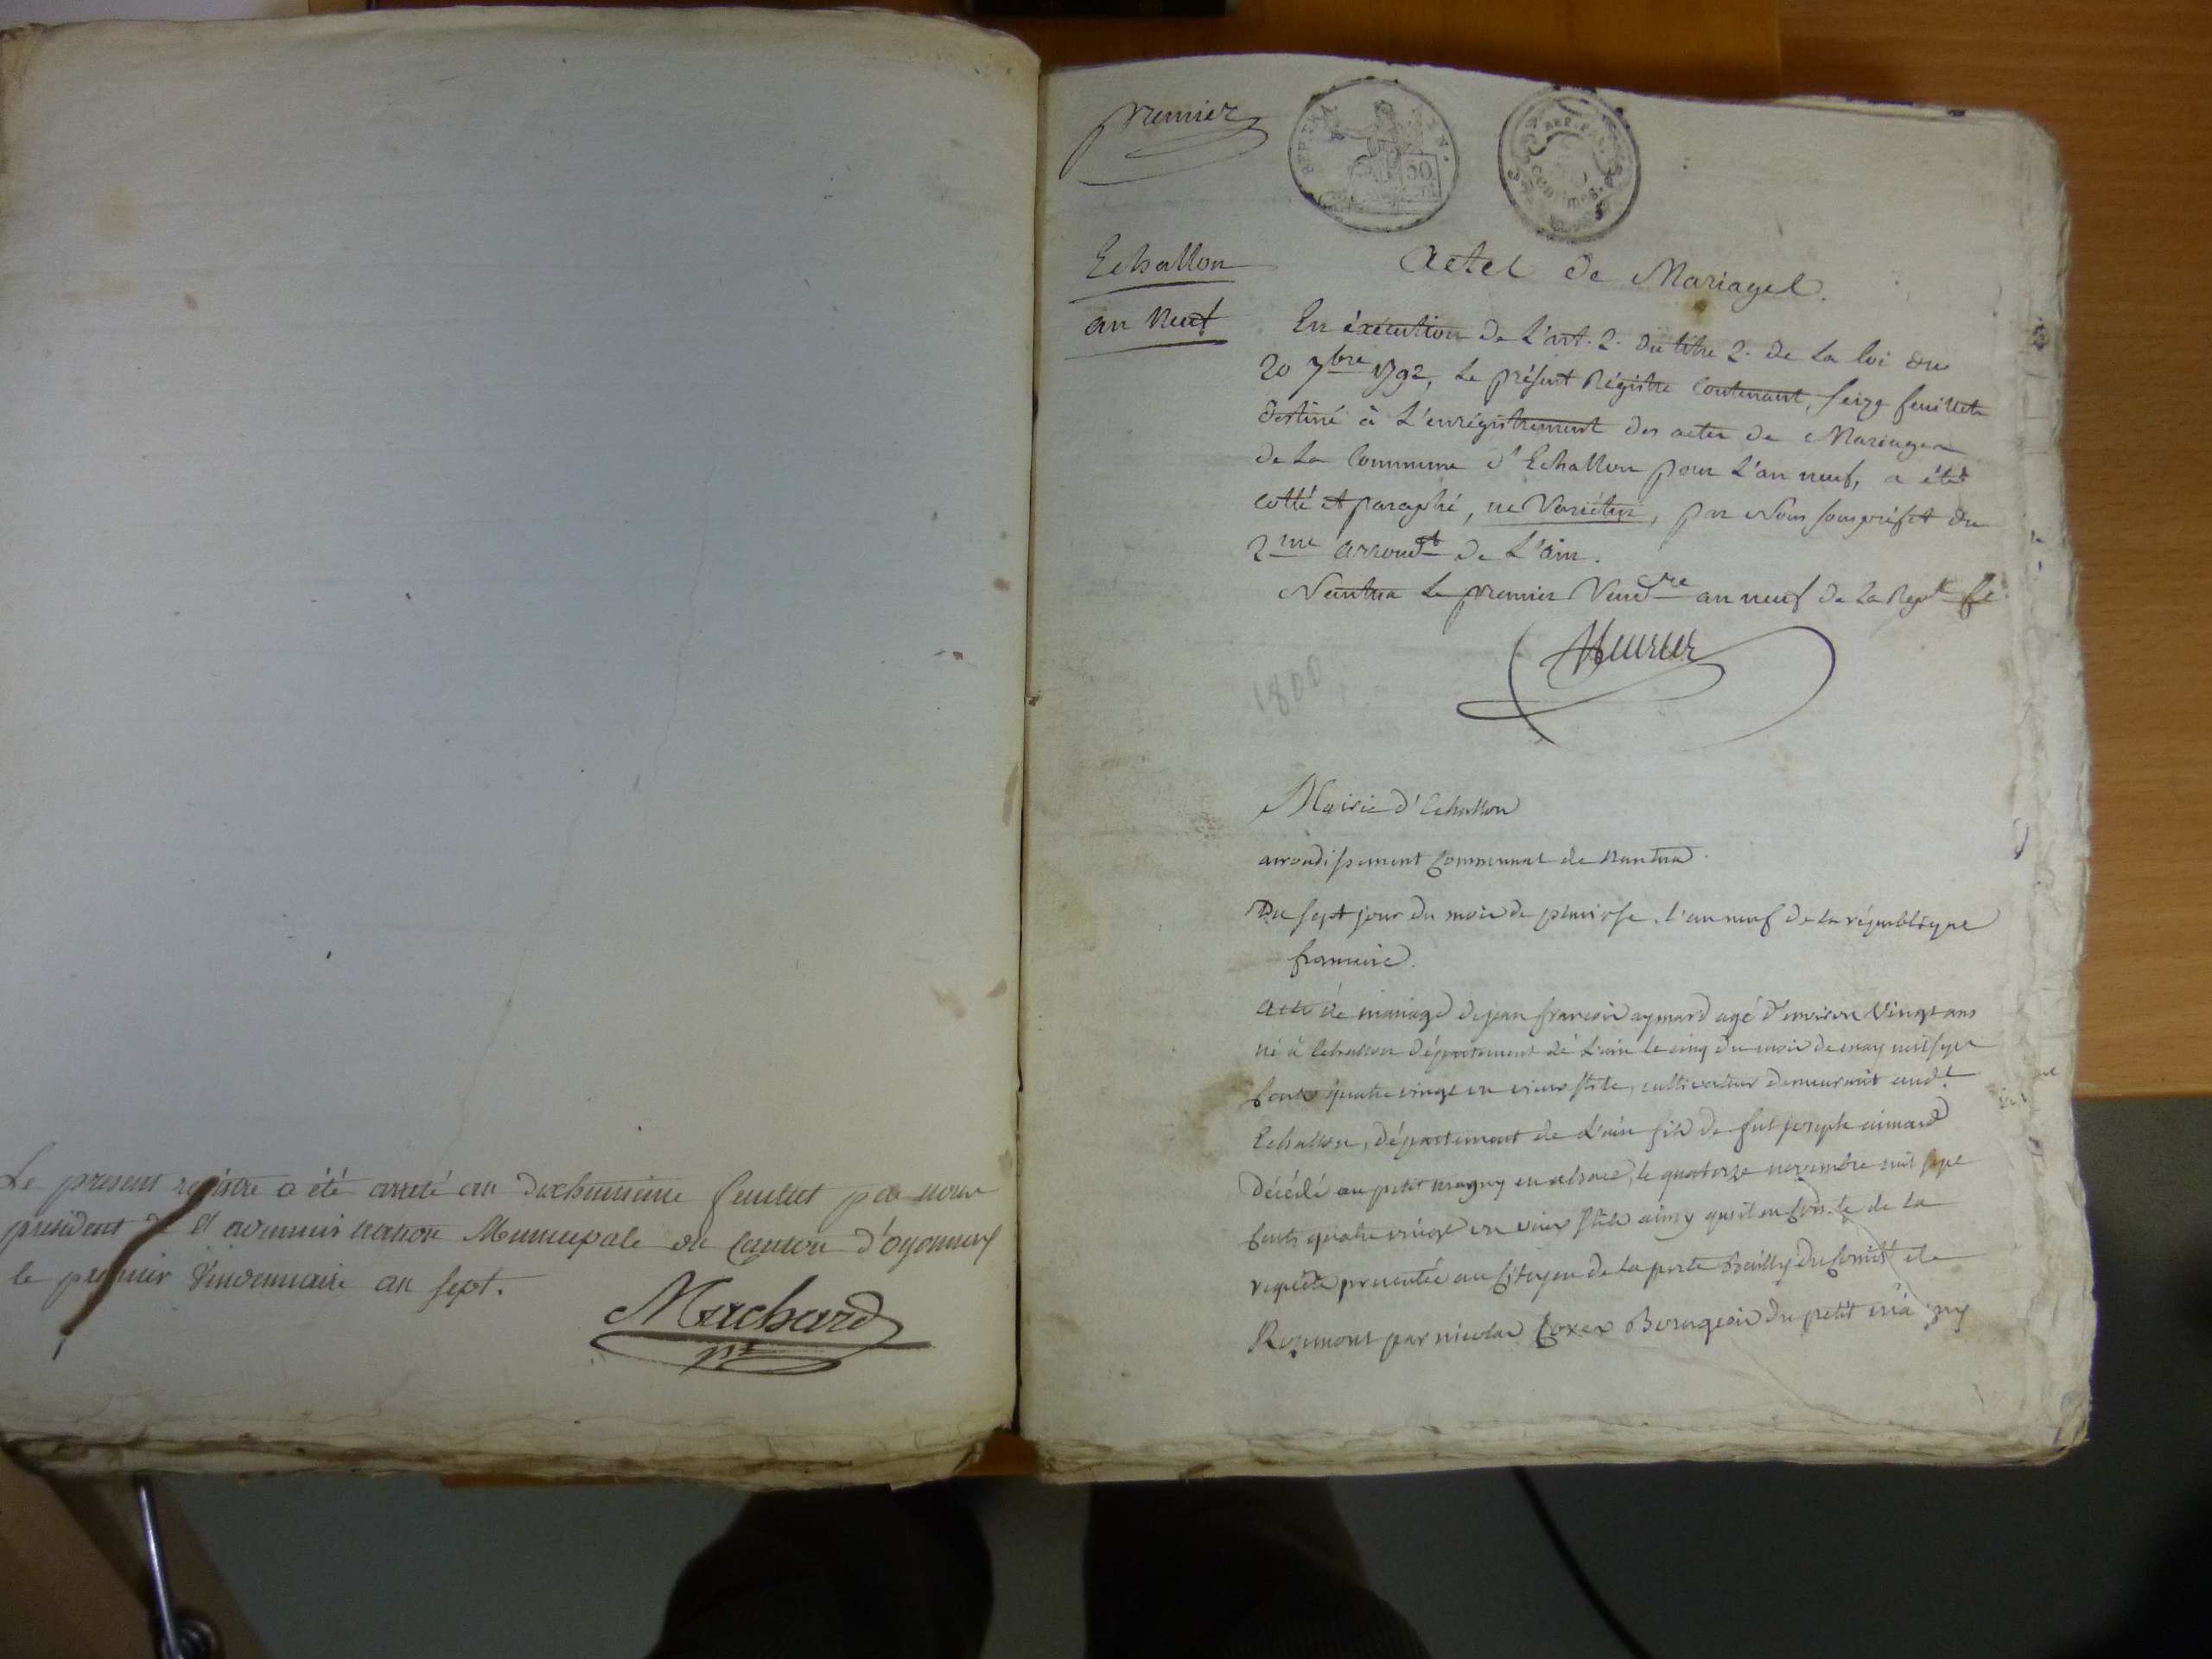 Le present registre a été arreté au dixhuitieme feuillet par nous
president de l'administration Municipale du Canton d'oyonnax
le premier Vindemiaire an sept.
Machard
pt
premier
REP. FRA
50
AIN.
REP. FRA.
Echallon
an neuf
Actes de Mariages.
En éxécution de L'art. 2. du titre 2. de La loi du
20 7bre 1792, Le présent Régistre Contenant, seize feuillets
destiné à L'enrégistrement des actes de Mariages
de La Commune d'Echallon pour L'an neuf, a été
cotté et paraphé, ne Variétur, par Nous souspréfet du
2me arrondt de L'ain.
Nantua Le premier Vendre an neuf de La Repe. fse
1800
Mairie d'Echallon
arrondissement Communal de Nantua
Du sept jour du mois de pluviose. l'an neuf de la république
francaise.
Acte de mariage de jean francois aymard agé d'environ Vingt ans
né à Echallon département de L'ain le cinq du mois de may mil sept
cents quatre vingt un vieux stile, cultivateur demeurant audt
Echallon, département de L'ain fils de fut joseph aimard
décédé au petit magny en alsace, le quatorze novembre mil sept
cents quatre vingt un vieux stile ainsy qu'il en conste de la
requète presentée au Citoyen de la porte Bailly du Comté de
par nicolas Bourgeois du petit magny